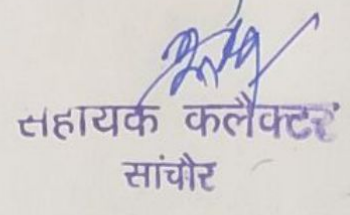 सहायक कलैक्टर
सांचौर